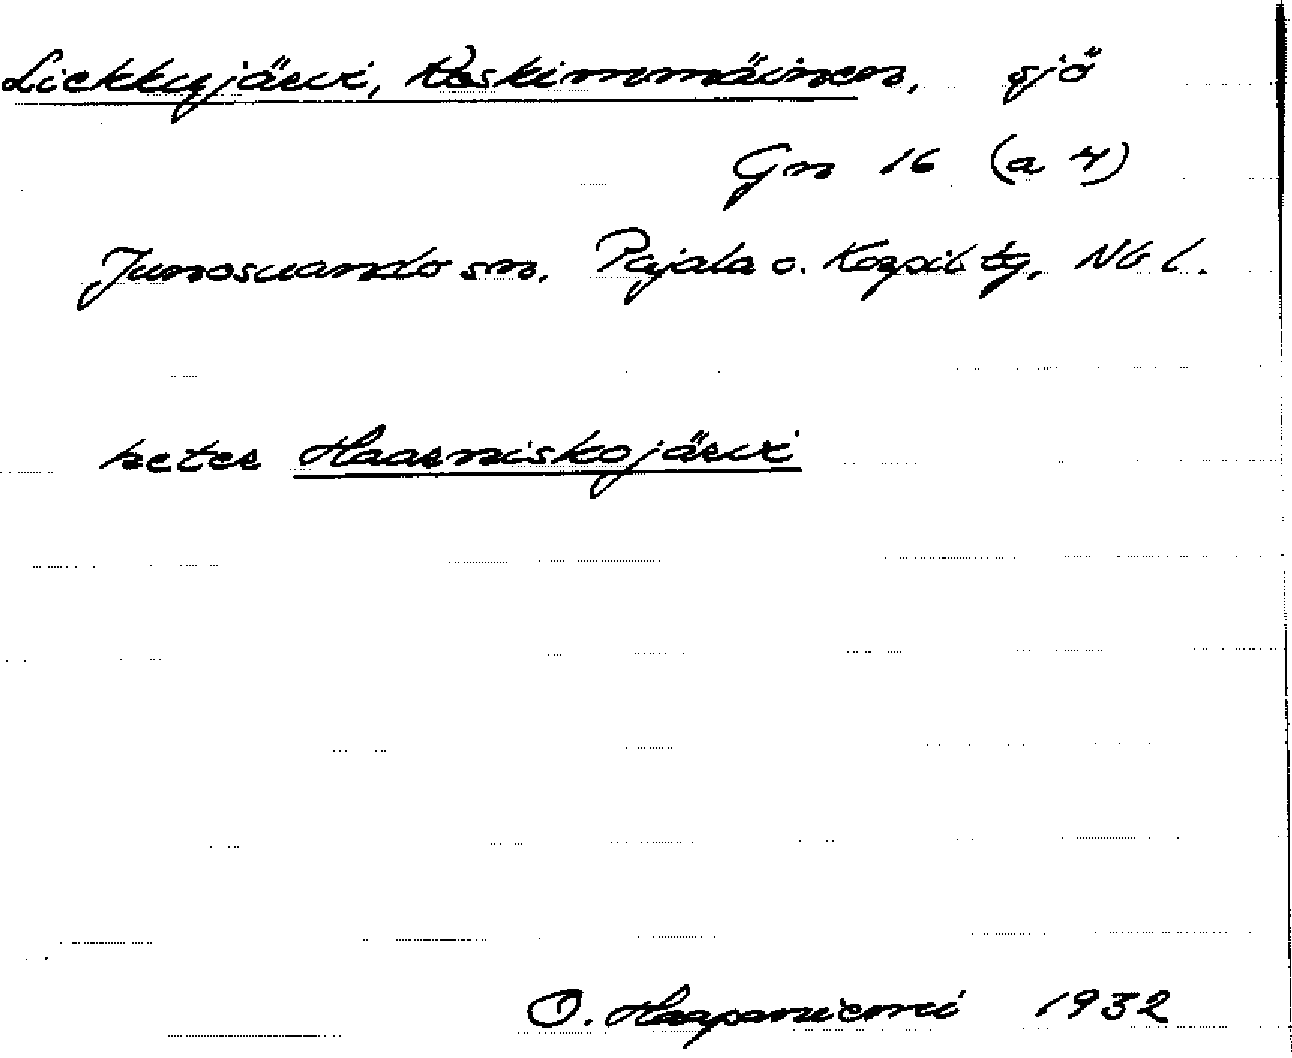 Liekkujärvi, Keskimmäinen, sjö
Gn 16 (a 4)
Junosuando sn. Pajala o. Korpil tg, Nb l.
heter Haarniskojärvi
O. Haapaniemi 1932